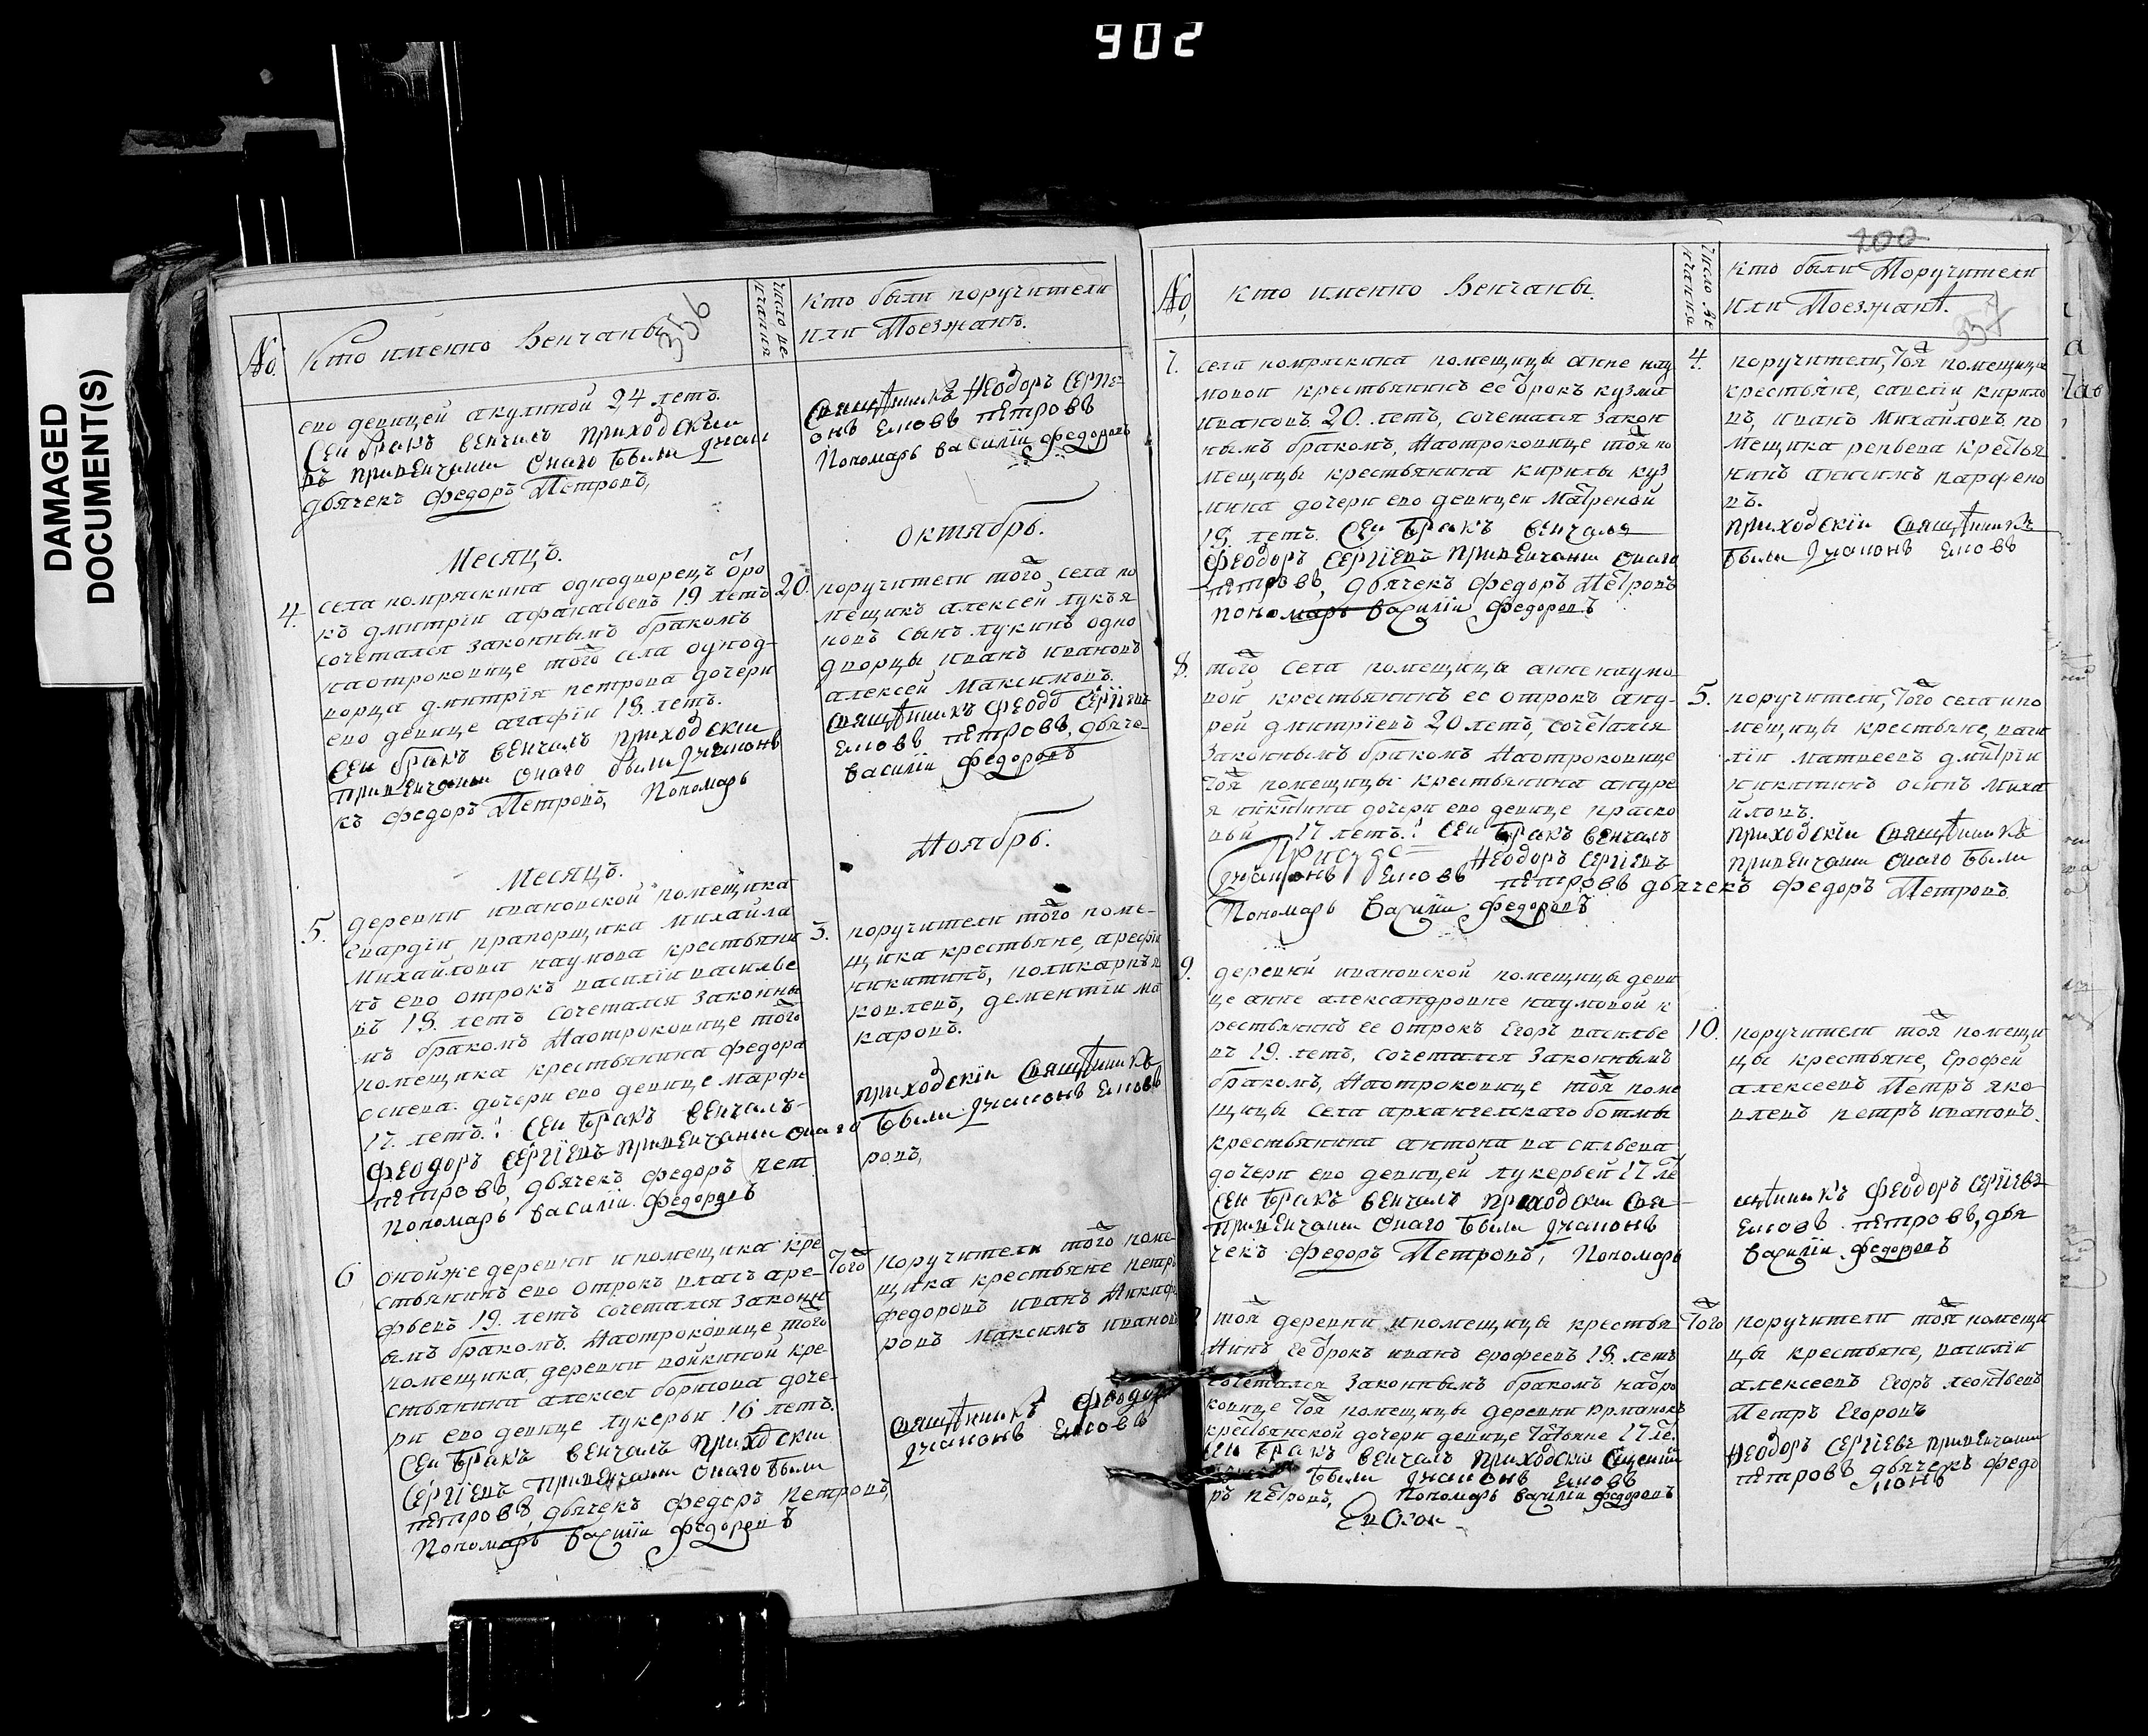 902
DAMAGED
DOCUMENT(S)
356
№
Кто именно Венчаны
число ве
нчания
кто были поручители
или Поезжанъ.
ево девицей акулиной 24 летъ.
Сеи бракъ венчалъ приходскии
привенчании онаго были
дьячекъ Федоръ Петровъ,
Священникъ Ѳеодоръ Серге
Петровъ
Пономарь василіи федоровъ
Месяцъ.
Октябрь.
4.
села помряскина однодворецъ отро
къ дмитріи афанасьевъ 19 летъ
сочетался законнымъ бракомъ
наотроковице того села однод
ворца дмитрія петрова дочери
ево девице агафіи 18. летъ.
Сеи бракъ венчалъ приходскіи
привенчании онаго были
къ федоръ Петровъ, Пономарь
20.
поручители того села по
мещикъ алексей лукья
новъ сынъ лукинъ одно
дворцы иванъ ивановъ
алексей Максимовъ.
Священникъ Феодо Сергіевъ
петровъ, дьяче
василіи федоровъ
Месяцъ.
Ноябрь.
5.
деревни ивановской помещика
гвардіи прапорщика михайла
Михайлова наумова крестьяни
нъ ево отрокъ василіи василье
въ 18. летъ сочетался законны
мъ бракомъ наотроковице того
помещика крестьянина федора
дочери ево девице марфе
17. летъ. Сеи бракъ венчалъ
Феодоръ Сергіевъ привенчании онаго
петровъ, дьячекъ федоръ пет
Пономарь василіи федоровъ
3.
поручители того поме-
щика крестьяне, арефіи
никитинъ, поликарпъ я
ковлевъ, дементіи ма
каровъ.
приходскіи Священникъ
были
ровъ,
6
онойже деревни ипомещика кре
стьянинъ ево отрокъ власъ аре-
фьевъ 19. летъ сочетался законн
ымъ бракомъ. наотроковице того
помещика, деревни войкиной кре-
стьянина алексея доче-
ри ево девице лукерьи 16 летъ.
Сеи бракъ венчалъ приходскіи
Сергіевъ привенчании онаго были
петровъ, дьячекъ федоръ петровъ,
Пономарь василіи федоровъ
Того
поручители того поме
щика крестьяне петръ
федоровъ иванъ Никифо
ровъ максимъ ивановъ
Священникъ Феодоръ
200
357
№
кто именно Венчаны.
число ве
нчания
кто были Поручители
или Поезжанъ.
7.
села помряскина помещицы анне нау
мовой крестьянинъ ее отрокъ кузма
ивановъ 20. летъ, сочетался закон
нымъ бракомъ, наотроковице тоя по
мещицы крестьянина кирилы куз
мина дочери ево девицеи матреной
18. летъ. Сеи бракъ венчалъ
Феодоръ Сергіевъ привенчании онаго
петровъ, дьячекъ федоръ Петровъ
пономарь василіи федоровъ
4.
поручители, тоя помещицы
крестьяне, савеліи кирило
въ, иванъ Михайловъ по
мещика репьева крестья
нинъ анисимъ парфено
въ.
приходскіи Священникъ
были
8.
того села помещицы анне наумо
вой крестьянинъ ее отрокъ анд-
рей дмитріевъ 20 летъ, сочетался
законнымъ бракомъ наотроковице
тоя помещицы крестьянина андре
я никитина дочери ево девице праско
вьи 17 летъ. Сеи бракъ венчалъ
Ѳеодоръ Сергіевъ
петровъ дьячекъ федоръ Петровъ
Пономарь василіи федоровъ
5.
поручители, того села ипо
мещицы крестьяне, васи
ліи матвеевъ дмитріи
никитинъ осипъ миха
йловъ.
приходскіи Священникъ
привенчании онаго были
9.
деревни ивановской помещицы деви
це анне александровне наумовой к
рестьянинъ ее отрокъ Егоръ василье
въ 19. летъ, сочетался законнымъ
бракомъ, наотроковице тоя поме
щицы села архангелскаго ботмы
крестьянина антона васильева
дочери ево девицей лукерьей 17 ле
Сеи бракъ венчалъ приходскіи Свя-
привенчании онаго были
чекъ федоръ Петровъ, Пономарь
10.
поручители тоя помещи
цы крестьяне, Ерофей
алексеевъ Петръ яко
влевъ петръ ивановъ.
щенникъ Феодоръ Сергіевъ
петровъ, дья
василіи федоровъ
тоя деревни ипомещицы крестья
нинъ ее отрокъ иванъ ерофеевъ 18. летъ
сочетался законнымъ бракомъ наотро
ковице тоя помещицы деревни
крестьянской дочери девице татьяне 17 ле.
Сеи бракъ венчалъ приходскіи
были
ръ петровъ, Пономарь василіи федоровъ
Того
поручители тоя помещи
цы крестьяне, василіи
алексеевъ Егоръ леонтьевъ
Петръ Егоровъ
Ѳеодоръ Сергіевъ привенчании
петровъ дьячекъ федо